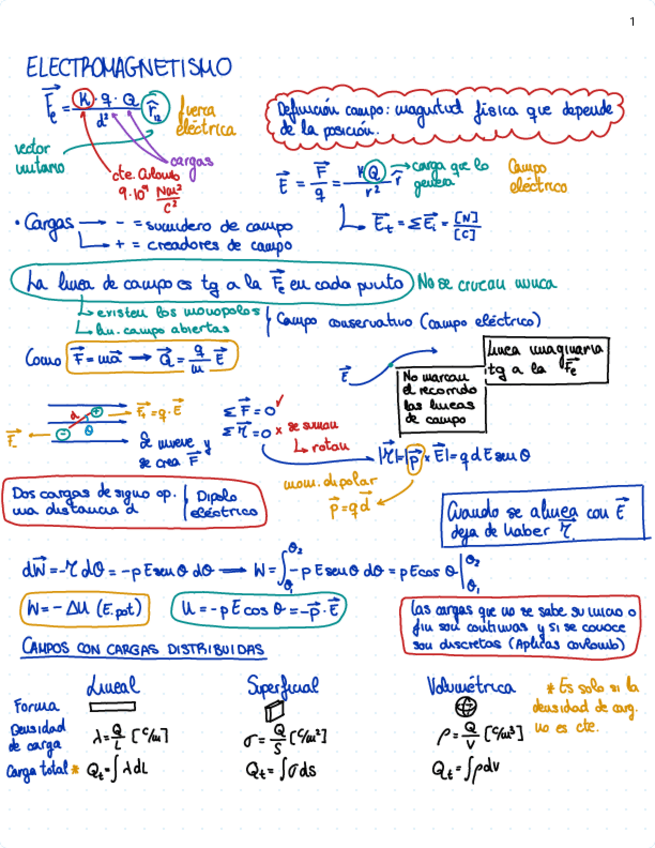 1
ELECTROMAGNETISMO
F⃗e = K · q · Q / d² r̂₁₂
fuerza eléctrica
vector unitario
cte. Culomb
9·10⁹ Nm²/C²
cargas
Definición campo: magnitud física que depende
de la posición.
E⃗ = F⃗/q = KQ/r² r̂
carga que lo genera
Campo eléctrico
E⃗t = ΣE⃗i = [N]/[C]
· Cargas → - = sumidero de campo
→ + = creadores de campo
La linea de campo es tg a la F⃗e en cada punto
No se cruzan nunca
existen los monopolos
lin. campo abiertas
Campo conservativo (campo eléctrico)
Como F⃗ = ma⃗ → a⃗ = q/m E⃗
E⃗
Linea imaginaria
tg a la F⃗e
No marcan
el recorrido
las lineas
de campo
d + - θ
F⃗+ = q·E⃗
F⃗-
Se mueve y
se crea F⃗
ΣF⃗ = 0 ✓
Στ⃗ = 0 x se suman
→ rotan
|τ⃗| = |p⃗ x E⃗| = q d E senθ
mom. dipolar
p⃗ = qd⃗
Dos cargas de signo op.
una distancia d
Dipolo
eléctrico
Cuando se alinea con E⃗
deja de haber τ⃗.
dW⃗ = -τ dθ = -p E senθ dθ → W = ∫θ₁^θ₂ -p E senθ dθ = pE cos θ |θ₁^θ₂
W = -ΔU (E.pot)
U = -p E cos θ = -p⃗ · E⃗
Las cargas que no se sabe su inicio o
fin son continuas y si se conoce
son discretas (Aplicas coulomb)
CAMPOS CON CARGAS DISTRIBUIDAS
Lineal
Superficial
Volumétrica
* Es solo si la
densidad de carg.
no es cte.
Forma
Densidad
de carga
λ = Q/L [C/m]
σ = Q/S [C/m²]
ρ = Q/V [C/m³]
Carga total *
Qt = ∫λdL
Qt = ∫σds
Qt = ∫ρdv